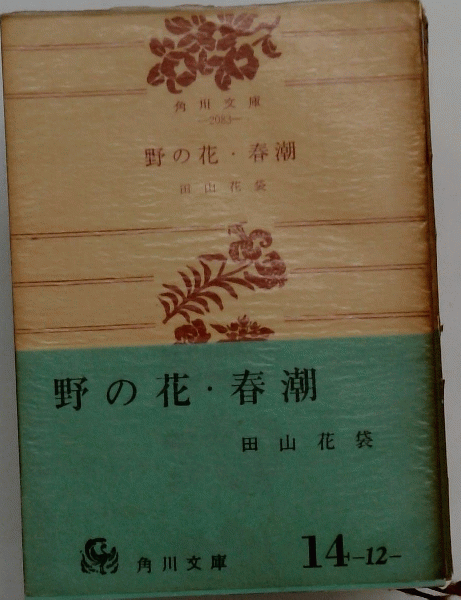 角川文庫
—2083—
野の花・春潮
田山花袋
野の花・春潮
田山花袋
角川文庫
14-12-